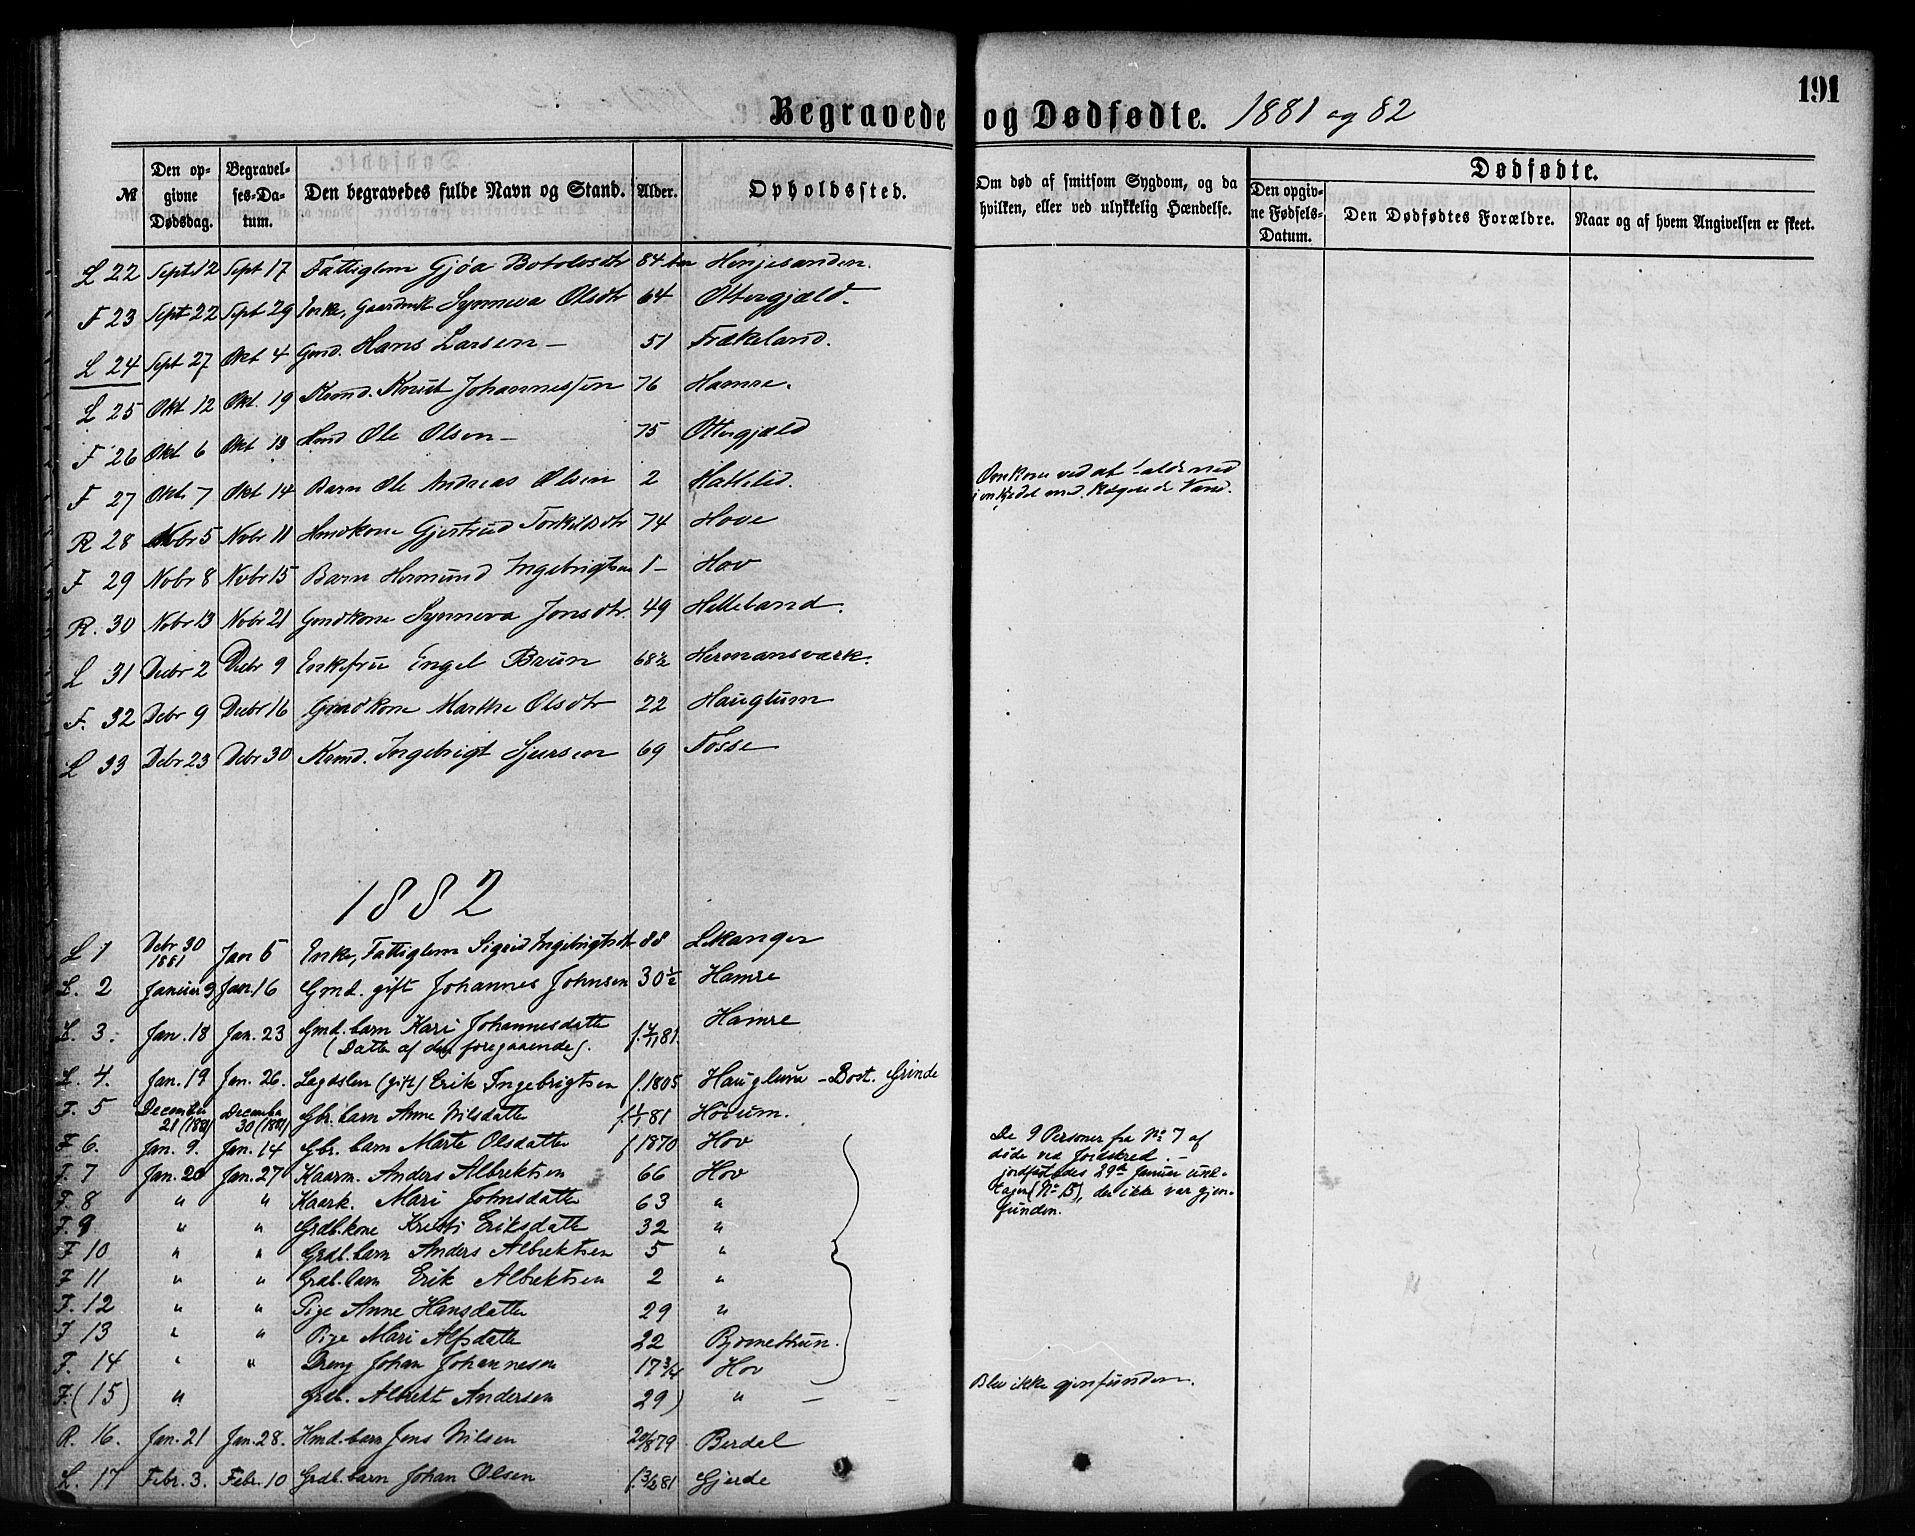 191
Begravede og Dødfødte. 1881 og 82
№ | Den opgivne Dødsdag. | Begravelses-Datum. | Den begravedes fulde Navn og Stand. | Alder. | Opholdssted. | Om død af smitsom Sygdom, og da hvilken, eller ved ulykkelig Hændelse. | Dødfødte. | Den opgivne Fødsels-Datum. | Den Dødfødtes Forældre. | Naar og af hvem Angivelsen er skeet.
L 22 Sept 12 Sept 17 Fattiglem Gjøa Botolvsdtr 84 Henjesanden.
F 23 Sept 22 Sept 29 Enke, Synneva Olsdtr 64 Ottergjæld.
L 24 Sept 27 Okt 4 Gmd. Hans Larsen – 51 Frækeland.
L 25 Okt 12 Okt. 19 Kmd. Knut Johannessen 76 Hamre.
F 26 Okt 6 Okt 13 Hmd Ole Olsen – 75 Ottergjæld
F 27 Okt 7 Okt 14 Barn Ole Andreas Olsen 2 Hattelid. Omkom ved at falde ned i en Kjedel med kogende Vand.
R 28 Nobr 5 Nobr 11 Hmdkone Gjertrud Torkildsdtr 74 Hove
F 29 Nobr 8 Nobr 15 Barn Hermund Ingebrigtsen 1 – Hov
R. 30 Nobr 13 Nobr 21 Gmdkone Synneva Jonsdtr. 49 Helleland.
L 31 Decbr 2 Decbr 9 Enkefru Engel Brun 68½ Hermansværk.
F. 32 Debr 9 Decbr 16 Gmdkone Marthe Olsdtr 22 Hauglum
L 33 Debr 23 Debr 30 Kmd. Ingebrigt Sjursen 69 Fosse
1882
L 1 Debr 30 1881 Jan 6 Enke, Fattiglem Sigrid Ingebrigtsdt 88 Lekanger
L. 2 Januar 9 Jan. 16 Gmd. gift Johannes Johnsen 30½ Hamre
L. 3. Jan. 18 Jan. 23 Gmd. barn Kari Johannesdatter f. 81. Hamre
(Datter af den foregaaende).
L. 4. Jan. 19 Jan. 26. Lægdslem (gift) Erik Ingebrigtsen f. 1805 Hauglum – Bost. Grinde
F. 5 December 21 (1881) December 30 (1881) Gbr. barn Anne Nilsdatter f. 81 Hovum.
F 6. Jan. 9. Jan. 14 Gbr. barn Marte Olsdatter f 1870 Hov
F. 7 Jan. 20 Jan. 27 Kaarm. Anders Albrektsen 66 Hov
De 9 Personer fra No 7 af
døde ved Jordskred. –
jordfæstedes 29de Januar und-
tagen (No 15), der ikke var gjen-
funden.
F. 8 " " Kaark. Mari Johnsdatter 63 "
F. 9 " " Grdb. kone Kristi Eriksdatter 32 "
F 10 " " Grdb. barn Anders Albrektsen 5 "
F 11 " " Grdb. barn Erik Albrektsen 2 "
F. 12 " " Pige Anne Hansdatter 29 "
F 13 " " Pige Mari Alfsdatter 22
F. 14 " " Dreng Johan Johannesen 17 3/4 Hov
F. (15) " Grdb. Albrekt Andersen 29) " – – Blev ikke gjenfunden.
R. 16. Jan. 21 Jan. 28. Hmd. barn Jens Nilsen 20/8 79 Berdal
L. 17 Febr. 3. Febr. 10 Grdb. barn Johan Olsen f. 3/2 81 Gjerde